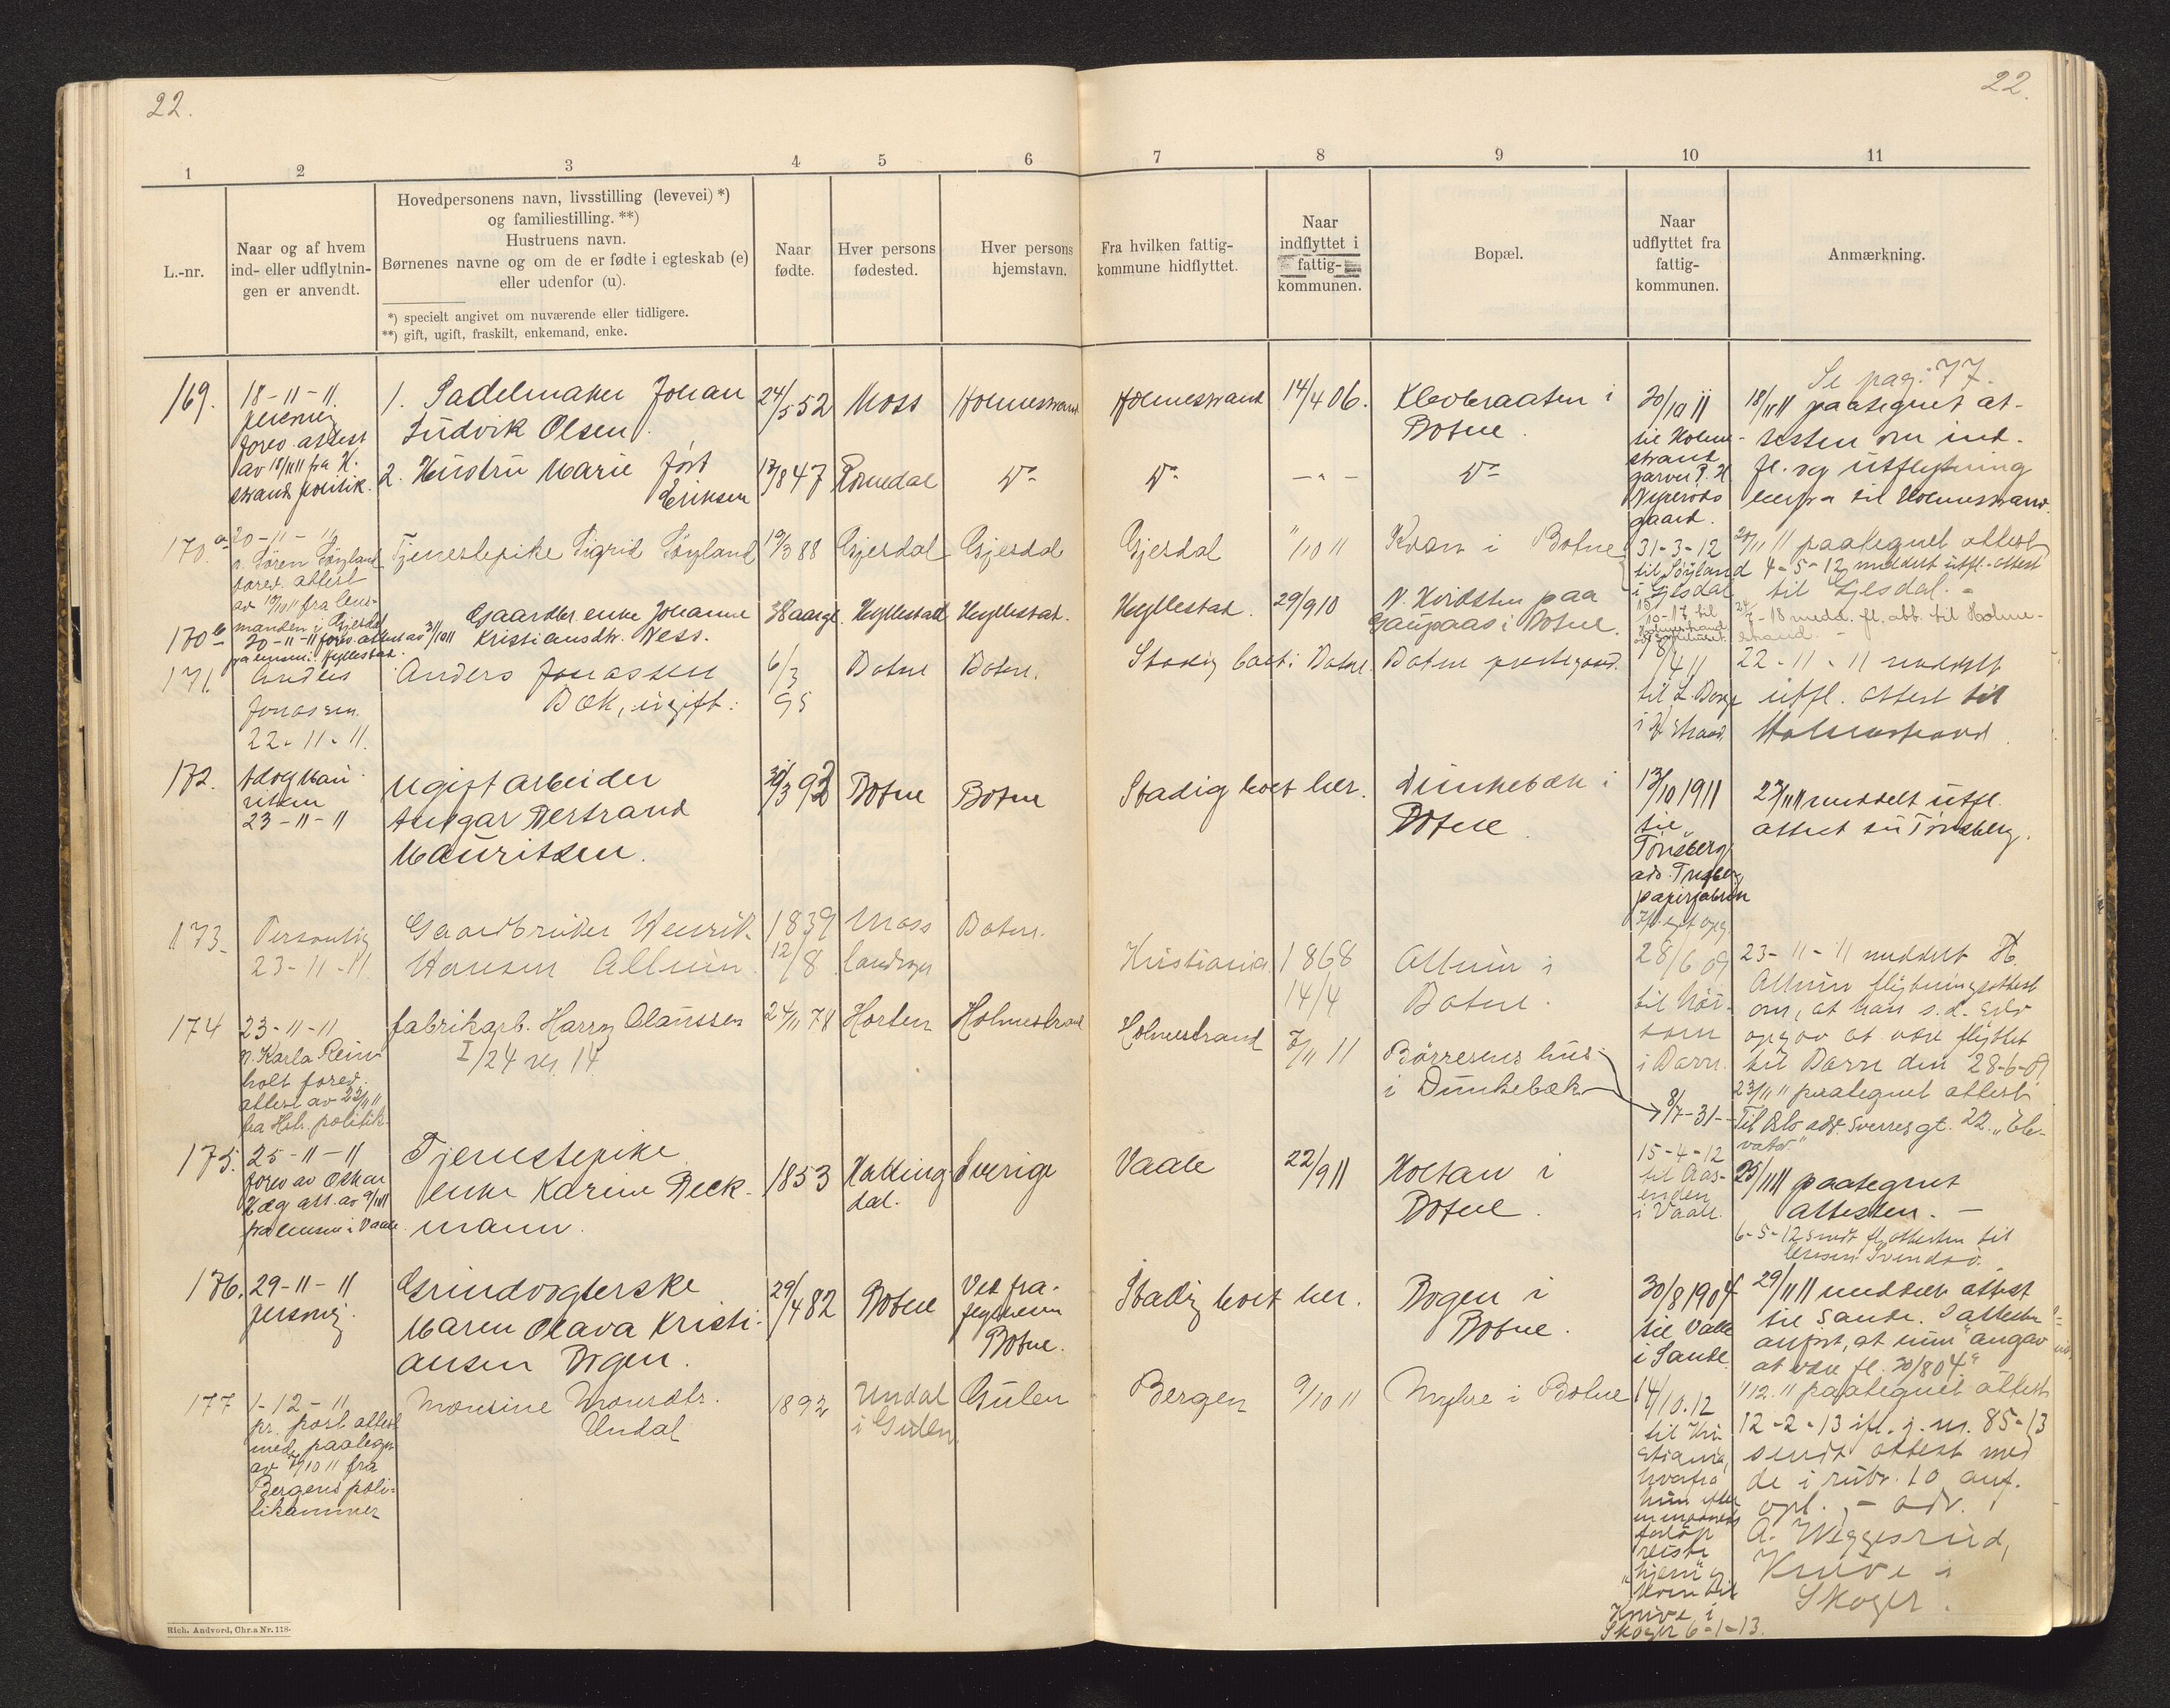 22.
22.
1 2 3 4 5 6 7 8 9 10 11
L.-nr.
Naar og af hvem
ind- eller udflytnin-
gen er anvendt.
Hovedpersonens navn, livsstilling (levevei) *)
og familiestilling. **)
Hustruens navn.
Børnenes navne og om de er fødte i egteskab (e)
eller udenfor (u).
*) specielt angivet om nuværende eller tidligere.
**) gift, ugift, fraskilt, enkemand, enke.
Naar
fødte.
Hver persons
fødested.
Hver persons
hjemstavn.
Fra hvilken fattig-
kommune hidflyttet.
Naar
indflyttet i
fattig-
kommunen.
Bopæl.
Naar
udflyttet fra
fattig-
kommunen.
Anmærkning.
169.
18-11-11.
personlig
forev. attest
av 18/11 11 fra H.
strands politik.
1. Sadelmaker Johan
Ludvik Olsen.
24/5 52
Moss
Holmestrand
Holmestrand
14/4 06.
Botne.
30/10 11
til Holme-
strand
garver P. H.
gaard.
Se pag: 77.
18/11 11 paategnet at-
testen om ind-
fl. og utflytning
herfra til Holmestrand.
2. Hustru Marie født
Eriksen
17/8 47
Romedal
Do
Do
— " —
Do
170 a
20-11-11
v. Sören Söyland
forev. attest
av 19/10 11 fra lens-
manden i Gjesdal
Tjenestepike Sigrid Söyland
19/3 88
Gjesdal
Gjesdal
Gjesdal
"/10 11
Kvan i Botne
31-3-12
til Söyland
i Gjesdal
20/11 11 paategnet attest
4-5-12 meddelt utfl.-attest
til Gjesdal. -
170 b
20-11-11 forev. attest av 31/10 11
fra lensm. i Hyllestad.
Gaardbr. enke Johanne
Kristiansdtr. Ness.
38 aargl.
Hyllestad
Hyllestad.
Hyllestad.
29/9 10
N. Hvidsten paa
Gaupaas i Botne.
171.
Anders
Jonassen
22-11-11.
Anders Jonassen
Bæk, ugift.
6/3
95
Botne
Botne.
Stadig boet i Botne.
Botne prestegaard.
22-11-11 meddelt
utfl. attest til
Holmestrand.
172.
23-11-11
Ugift arbeider
Ansgar Bertrand
Mauritsen.
Botne
Botne
Stadig boet her.
Dunkebæk i
Botne.
13/10 1911
til
Tönsberg
papirfabrik
23/11 11 meddelt utfl.
attest til Tönsberg.
173.
Personlig
23-11-11
Gaardbruker Henrik
Hansen Allum
1839
12/8
Moss
landsogn
Botne.
Kristiania
1868
14/4
Allum i
Botne.
28/6 09
til Nör-
i Borre.
23-11-11 meddelt H.
Allum flytningsattest
om, at han s.d. selv
opgav at være flyttet
til Borre den 28-6-09
174
23-11-11
v. Karla Rein-
holt forev.
attest av 22/11 11
fra Hlstr. politik.
fabrikarb. Harry Claussen
I/24 nr. 14
24/11 78
Horten
Holmestrand
Holmestrand
7/11 11
Börresens hus
i Dunkebæk
8/7-31-
23/11 11 paategnet attest
Til Oslo adr. Sverresgt. 22. "Ele-
vator"
175.
25-11-11
forev. av Oskar
fra lensm. i Vaale.
Tjenestepike
enke Karine Beck-
mann.
1853
Halling-
dal.
Sverige
Vaale
22/9 11
Holtan i
Botne.
15-4-12
til Aas-
enden
i Vaale.
25/11 11 paategnet
attesten. —
6-5-12 sendt fl.attesten til
176.
29-11-11
personlig.
Grindvogterske
Maren Olava Kristi-
ansen Bogen.
29/4 82
Botne
Ved fra-
flytning
Botne.
Stadig boet her.
Bogen i
Botne.
30/8 1904
til Valle
i Sande.
29/11 11 meddelt attest
til Sande. I attesten
anført, at hun "angav
at være fl. 30/8 04."
177
1-12-11
pr. post attest
med paategn.
av 7/10 11 fra
Bergens poli-
tikammer
Monsine Monsdtr.
Undal
1892
Undal
i Gulen
Gulen
Bergen
9/10 11
Myhre i Botne
14/10.12
til Kri-
stiania,
hvorfra
hun efter
en maaneds
forlöp
reiste
"hjem" og
kom til
Knive i
Skoger 6-1-13.
1/12. 11 paategnet attest
12-2-13 ifl. j. nr. 85-13
sendt attest med
de i rubr. 10 anf.
opl., - adr.
A. Weggesrud,
Knive i
Skoger.
Rich. Andvord, Chr.a Nr. 118.